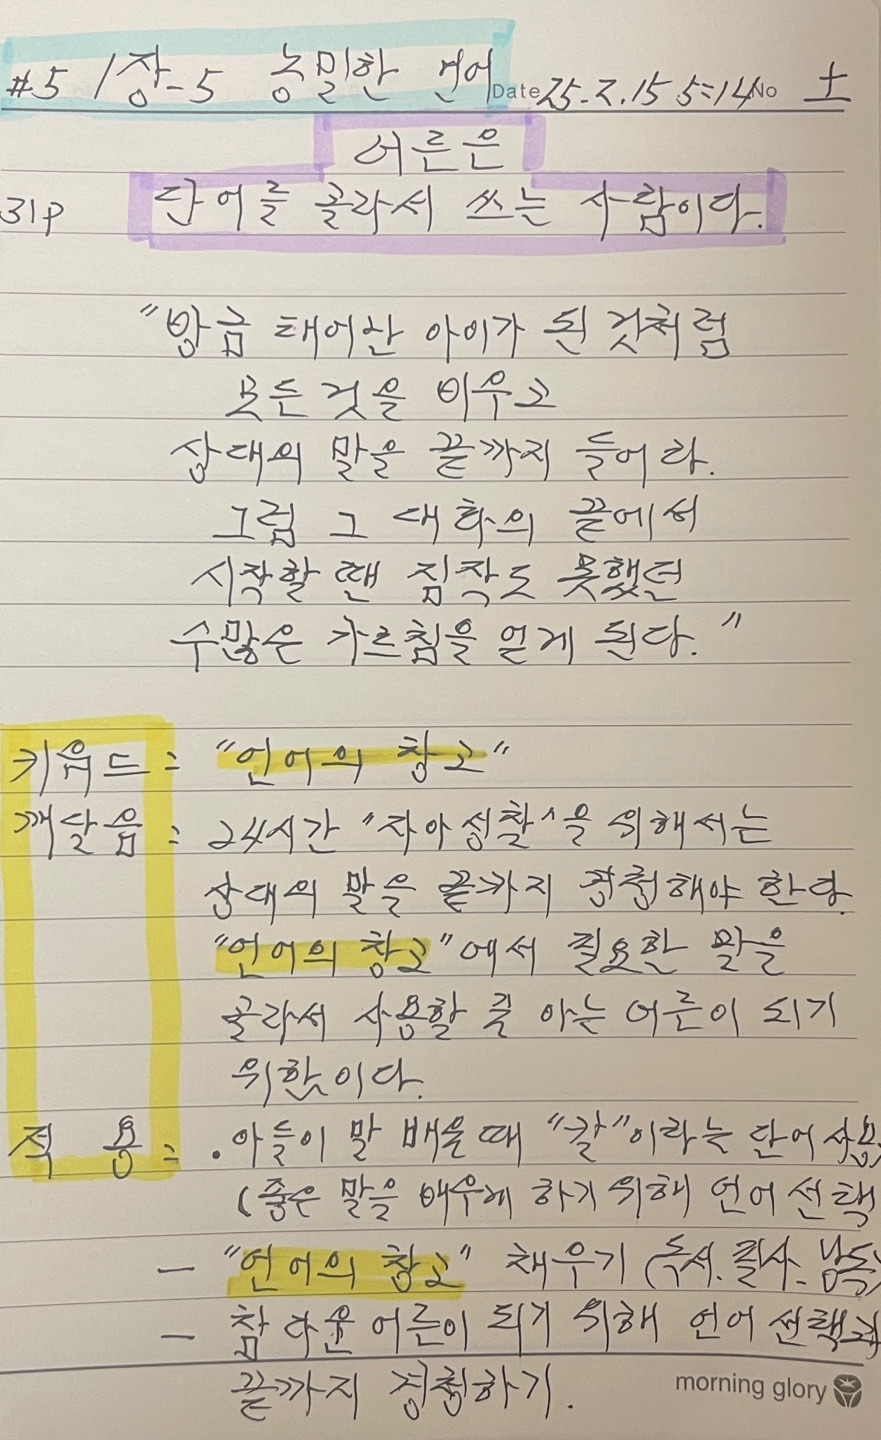 #5 1장-5 농밀한 언어 Date 25.2.15 5:14 No 土
어른은
31P 단어를 골라서 쓰는 사람이다.
"방금 태어난 아이가 된 것처럼
모든 것을 비우고
상대의 말을 끝까지 들어라.
그럼 그 대화의 끝에서
시작할 땐 짐작도 못했던
수많은 가르침을 얻게 된다."
키워드 : "언어의 창고"
깨달음 : 24시간 "자아성찰"을 위해서는
상대의 말을 끝까지 경청해야 한다.
"언어의 창고"에서 필요한 말을
골라서 사용할 줄 아는 어른이 되기
위함이다.
적 용 : . 아들이 말 배울 때 "칼"이라는 단어 사용
(좋은 말을 배우게 하기 위해 언어 선택
- "언어의 창고" 채우기 (독서. 필사. 낭독)
- 참다운 어른이 되기 위해 언어 선택과
끝까지 경청하기.
morning glory